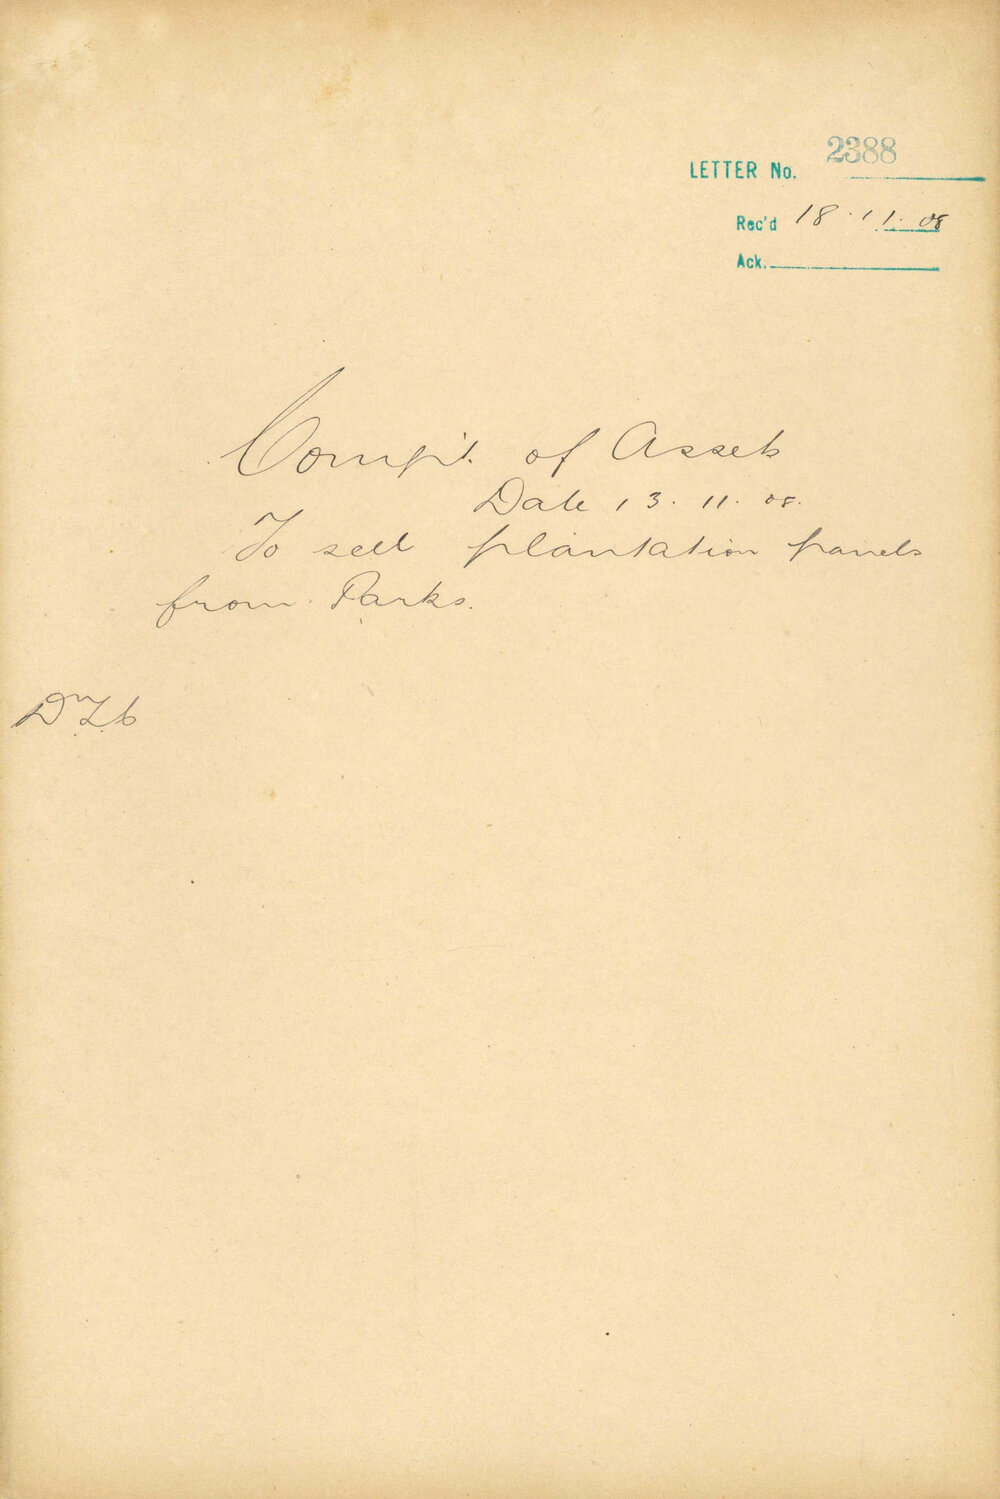 LETTER No. 2388
Rec'd 18.11.08
Ack.
Compt. of Assets
Date 13.11.08.
To sell plantation panels
from Parks.